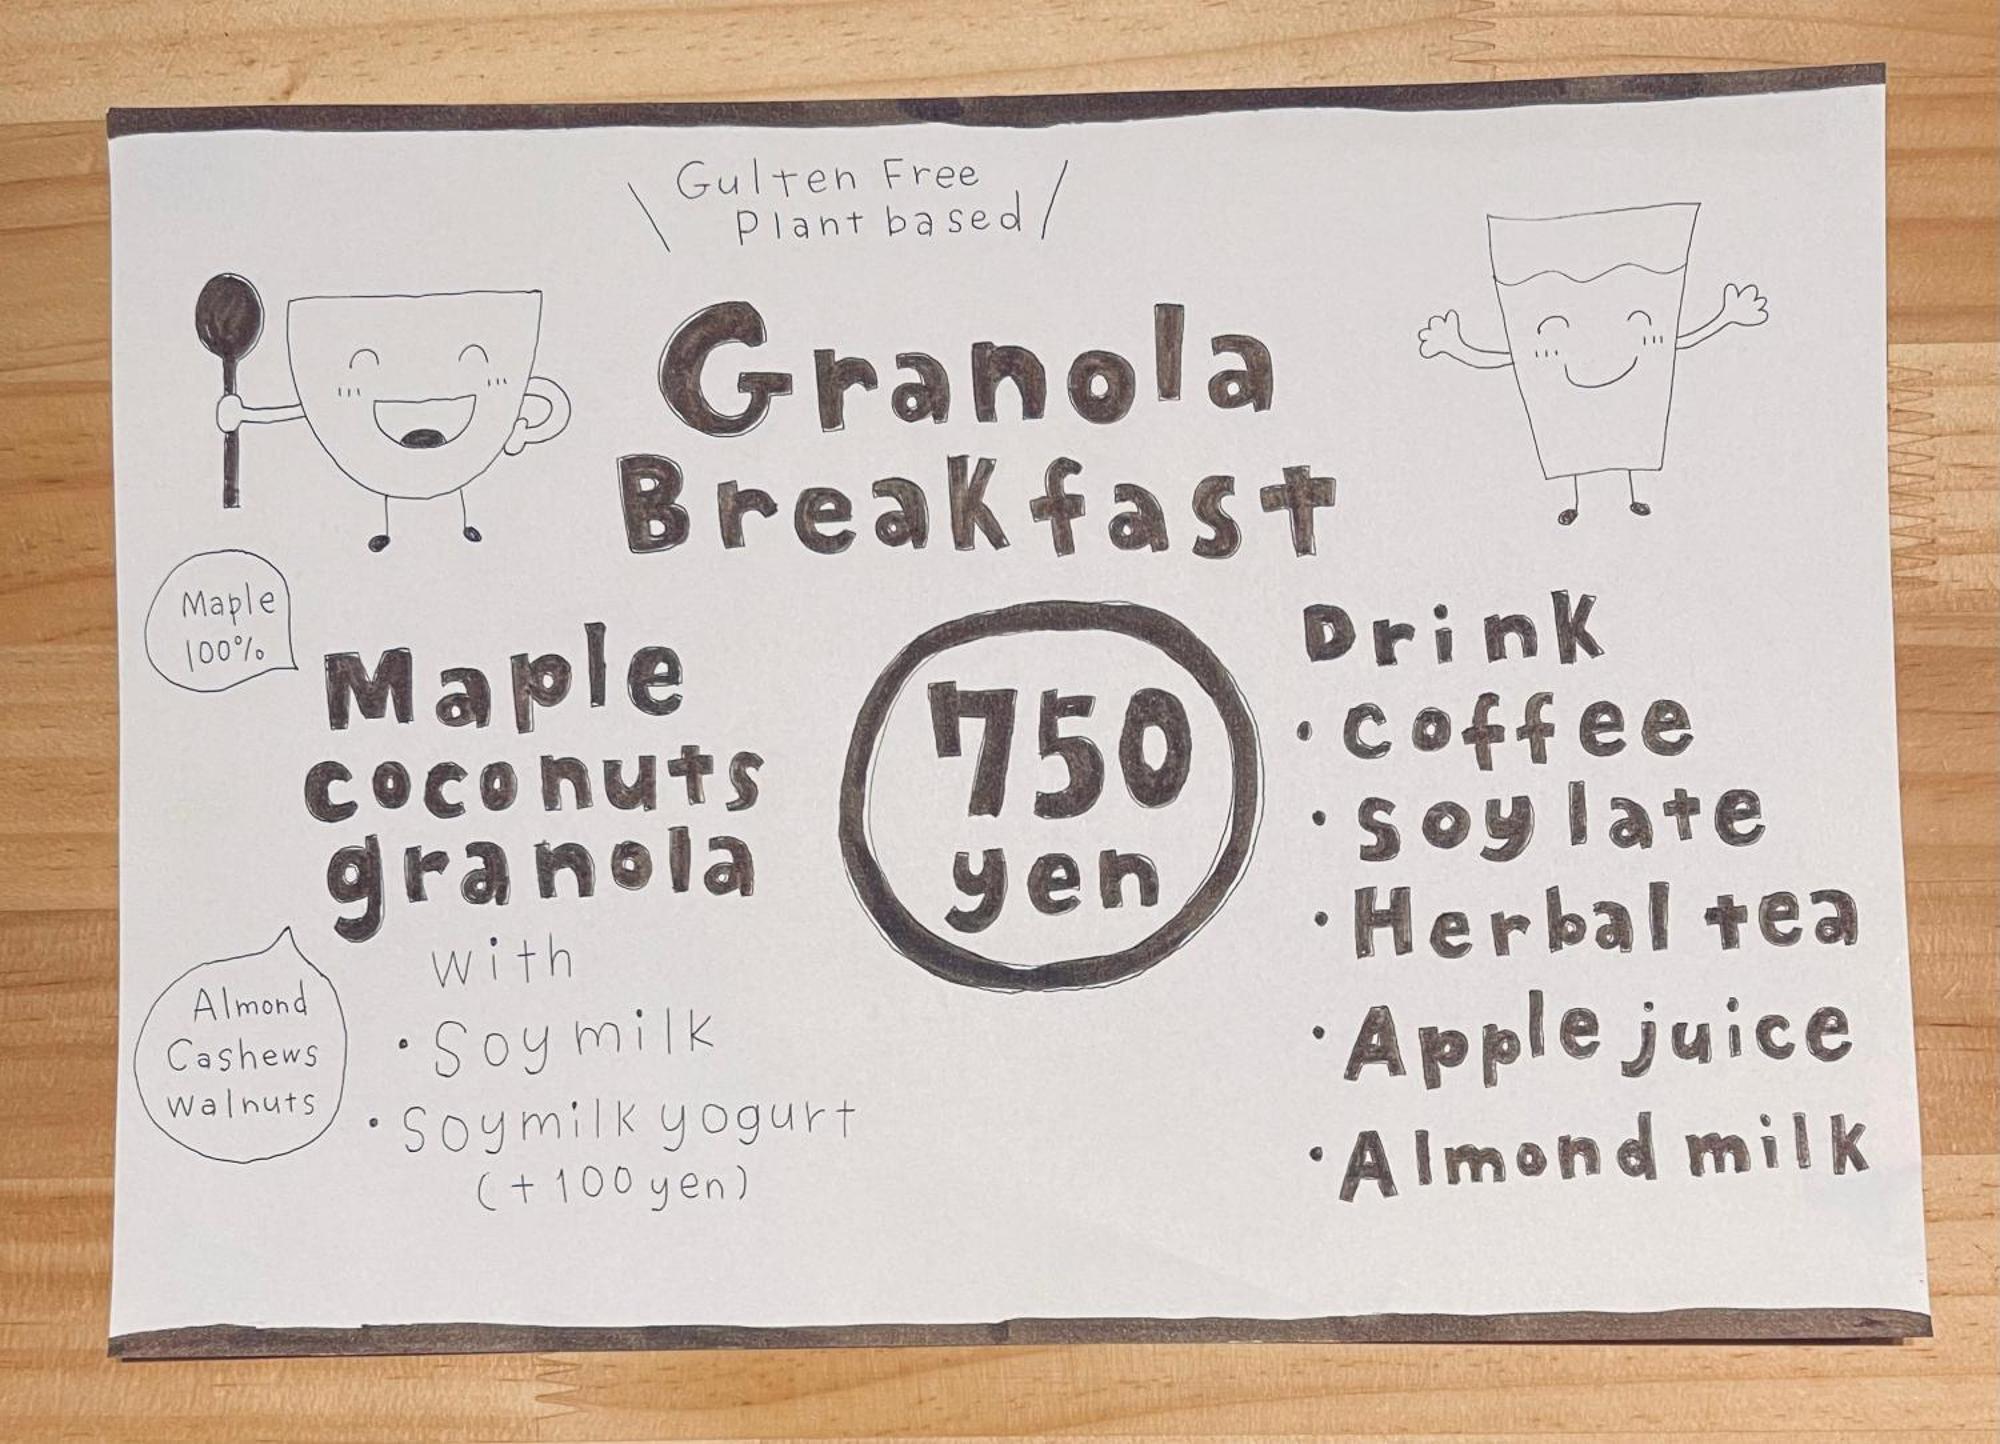 Gulten Free
Plant based
Granola
Breakfast
Maple
100%
Maple
coconuts
granola
Almond
Cashews
Walnuts
with
・Soymilk
・Soymilk yogurt
(+100yen)
750
yen
Drink
・coffee
・soy late
・Herbal tea
・Apple juice
・Almond milk